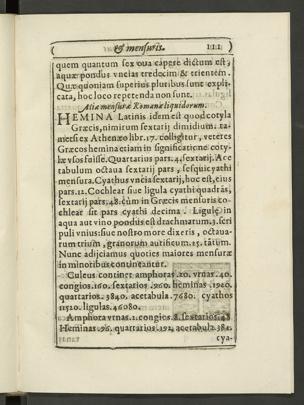 & mensuris. 111
quem quantum sex oua capere dictum est,
aquæ pondus vncias tredecim & trientem.
Quæ quoniam superius pluribus sunt expli-
cata, hoc loco repetenda non sunt.
Aliæ mensuræ Romanæ liquidorum.
HEMINA Latinis idem est quod cotyla
Græcis, nimirum sextarij dimidium. ta-
metsi ex Athenæo libr. 17. colligitur, veteres
Græcos hemina etiam in significatione coty-
læ vsos fuisse. Quartarius pars.4. sextarij. Ace
tabulum octaua sextarij pars, sesquicyathi
mensura. Cyathus vncia sextarij, hoc est, eius
pars.12. Cochlear siue ligula cyathi quadrās,
sextarij pars.48. cùm in Græcis mensuris co-
chlear sit pars cyathi decima. Ligulę in
aqua aut vino pondus est drachmarum.3. scri
puli vnius: siue nostro more dixeris, octaua-
rum trium, granorum
Nunc adijciamus quoties maiores mensuræ
in minoribus contineantur.
Culeus continet amphoras.20. vrnas.40.
congios.160. sextarios.960. heminas.1920.
quartarios.3840. acetabula.7680. cyathos
11520. ligulas.46080.
Amphora vrnas.2. congios.8. sextarios.48
Heminas.96. quartarios.192. acetabula.384.
cya-